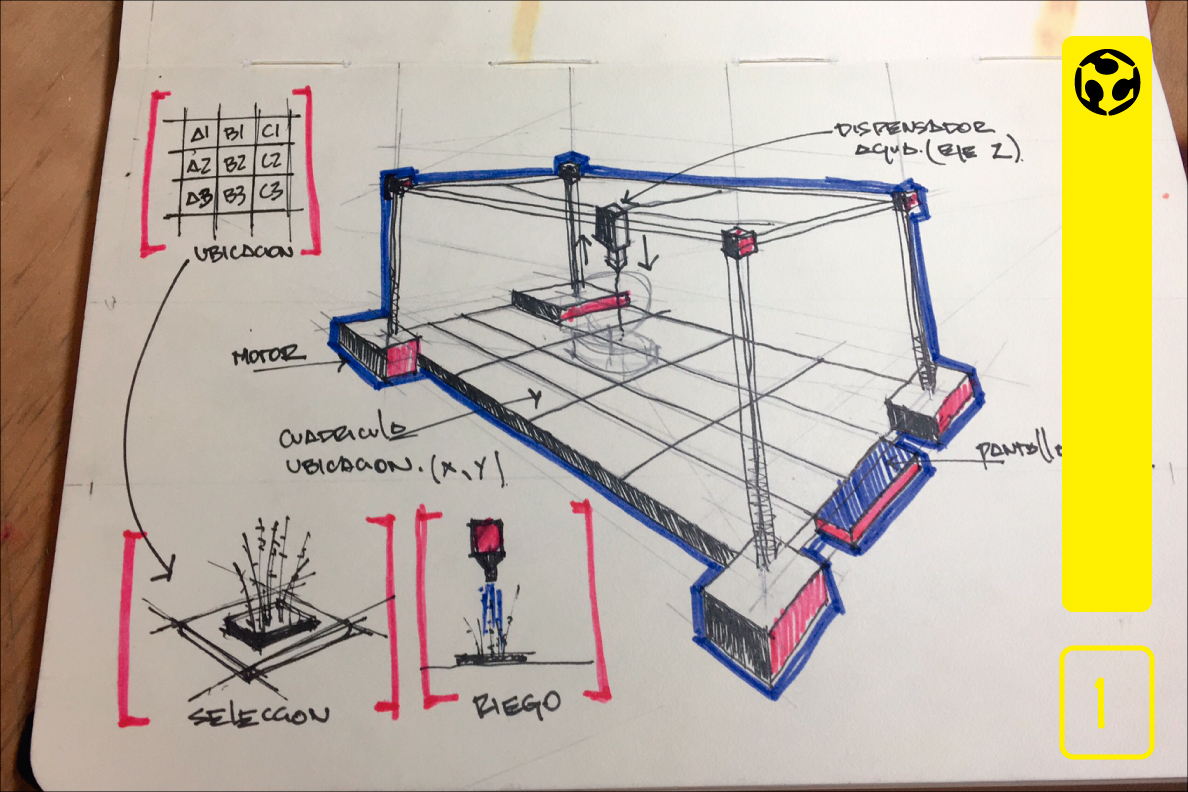 A1 B1 C1
A2 B2 C2
A3 B3 C3
UBICACION
DISPENSADOR
AGUA. (EJE Z).
MOTOR
CUADRICULA
UBICACION. (X, Y)
PANTALL
SELECCION
RIEGO
1